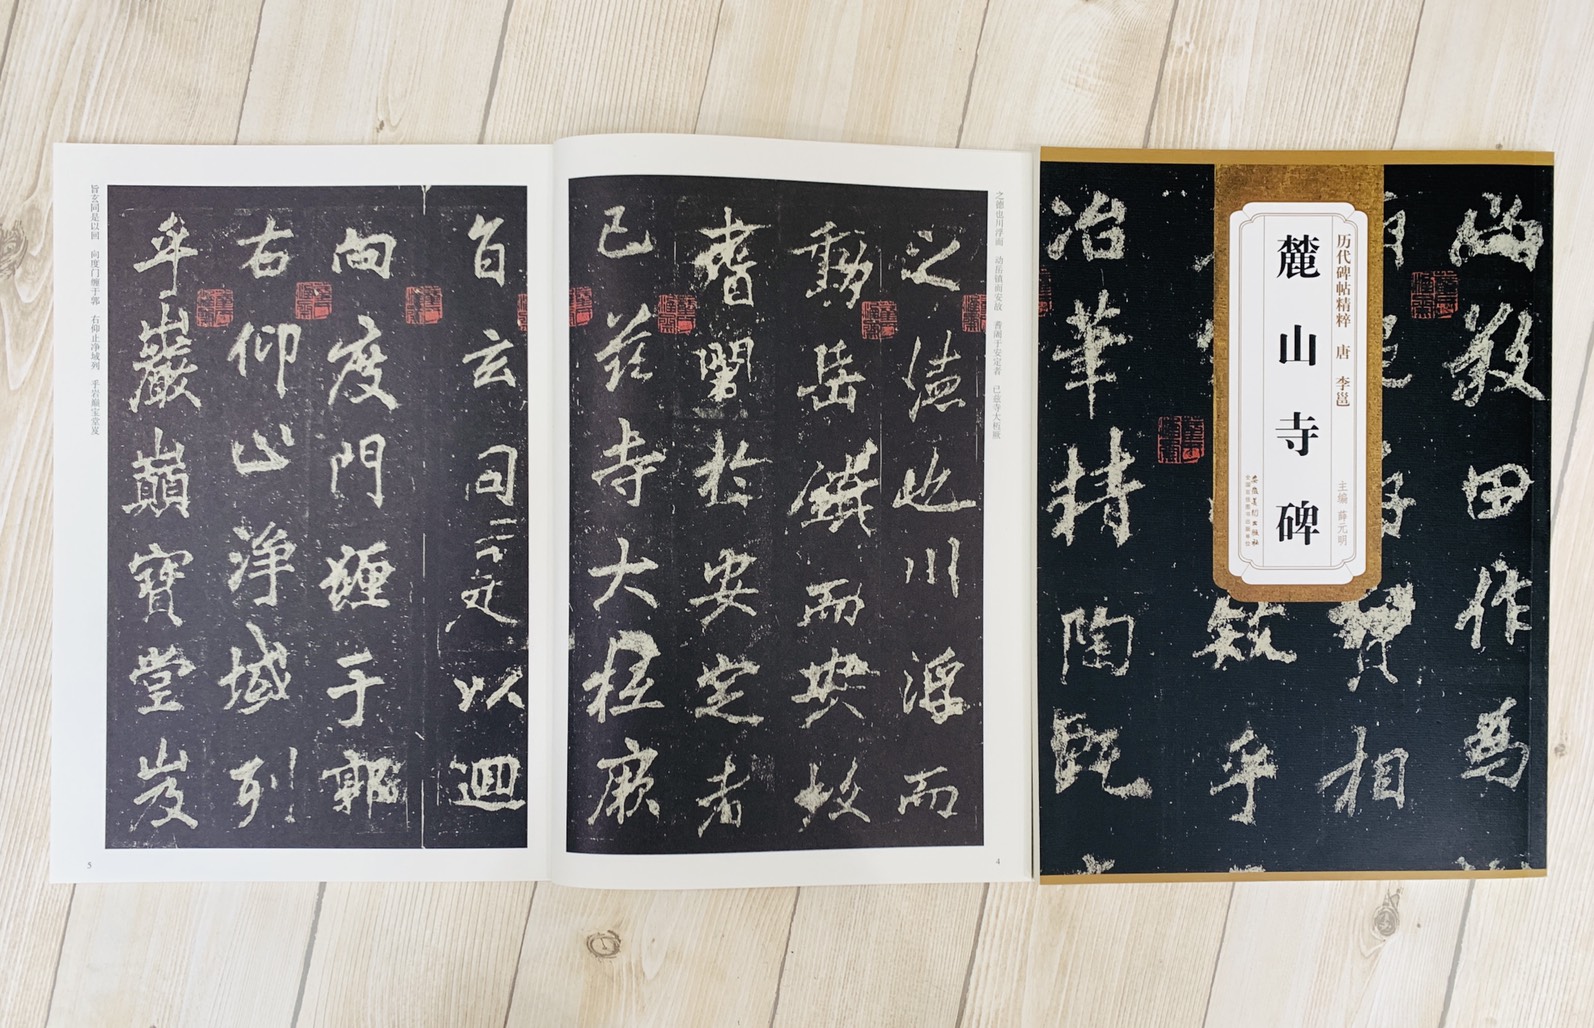 历代碑帖精粹 唐 李邕
麓山寺碑
主编 薛元明
安徽美术出版社
数田作為
相
乎
冶華精陶甄
之德也川浮而 动岳镇而安故 耆阇于安定者 已兹寺大抵厥
之德也川浮而
動岳鎮而安故
耆闍於安定者
已茲寺大抵厥
4
旨玄同是以迴
向度門纏于郭
右仰止淨域列
乎巖巔寶堂岌
旨玄同是以回 向度门缠于郭 右仰止净域列 乎岩巅宝堂岌
5